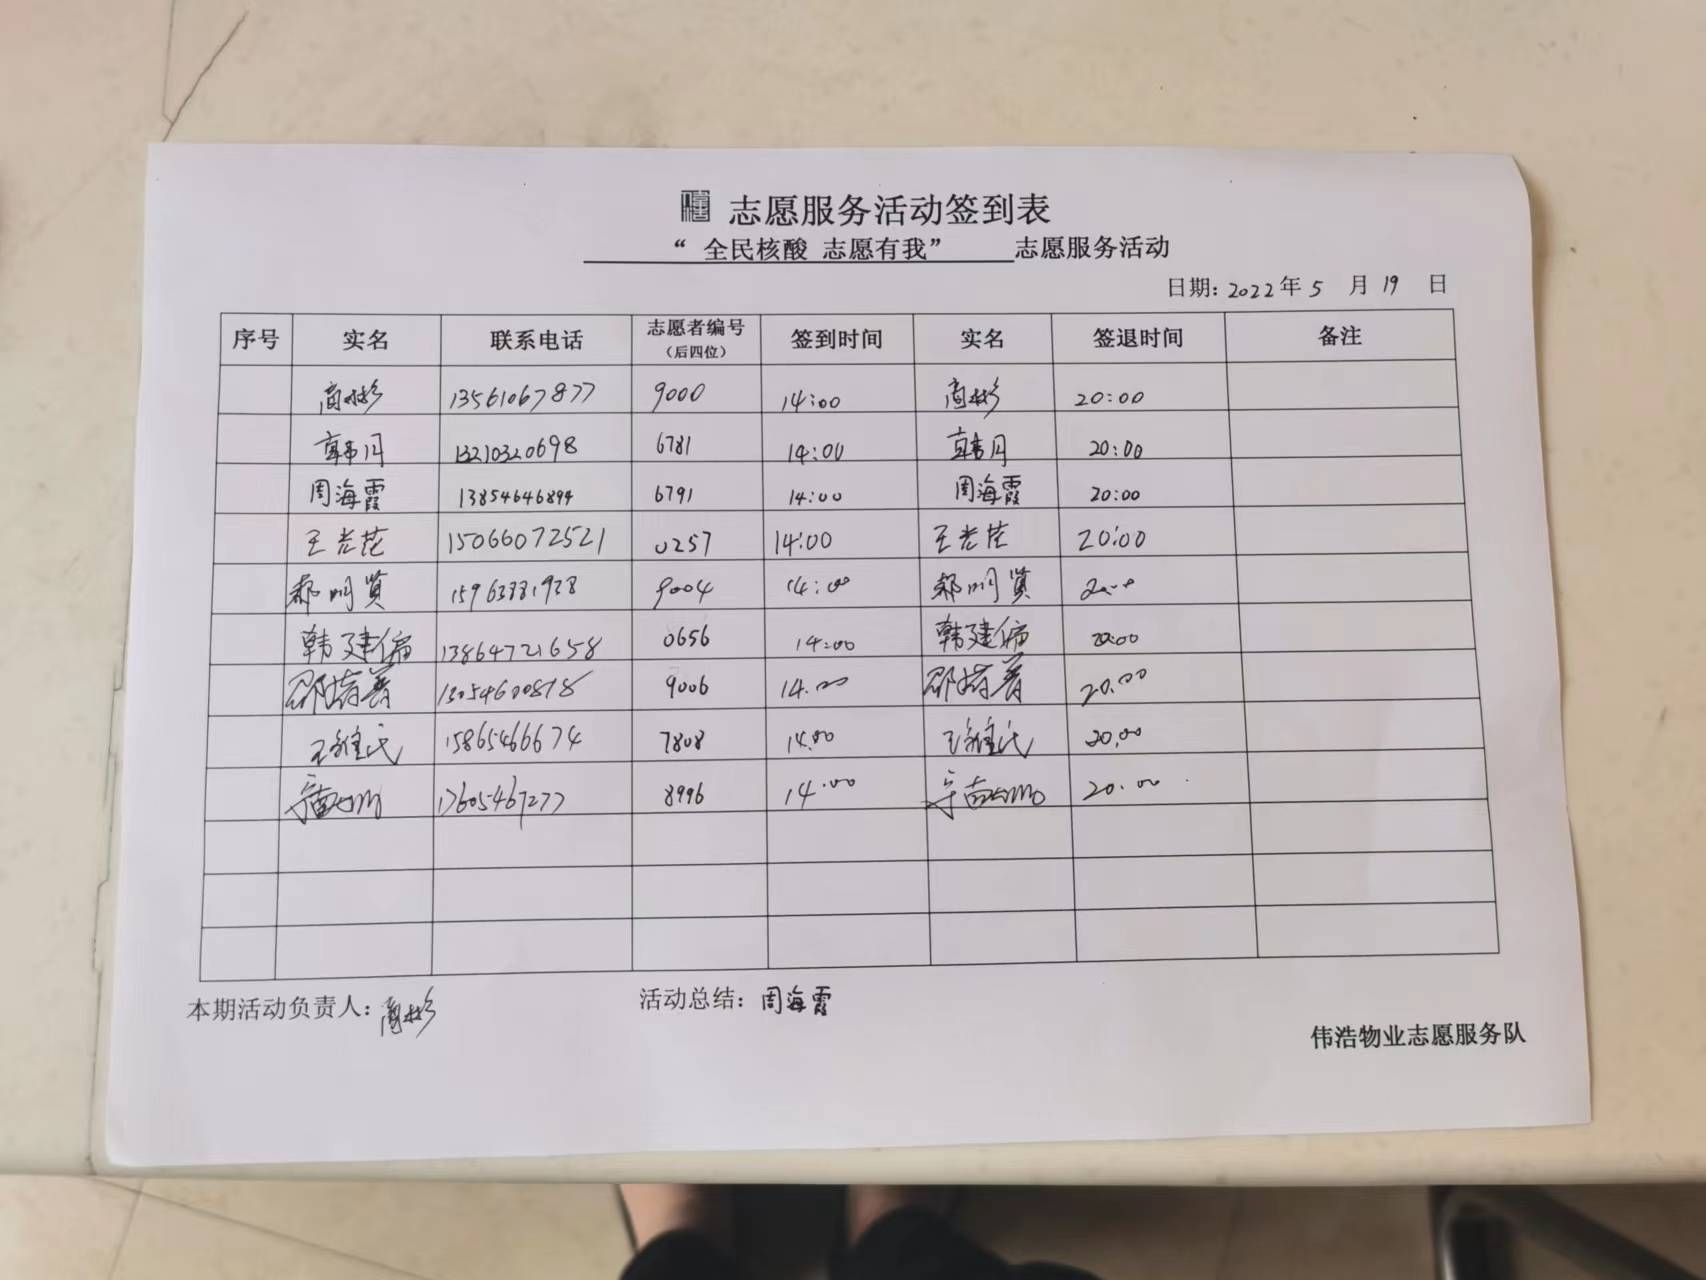 志愿服务活动签到表
“全民核酸 志愿有我” 志愿服务活动
日期: 2022年5月19日
序号 实名 联系电话 志愿者编号（后四位） 签到时间 实名 签退时间 备注
商彬 13561067877 9000 14:00 商彬 20:00
韩月 13210320698 6781 14:00 韩月 20:00
周海霞 13854646894 6791 14:00 周海霞 20:00
王芒茫 15066072521 0257 14:00 王芒茫 20:00
郝明贤 15963881928 9004 14:00 郝明贤
韩建偏 13864721658 0656 14:00 韩建偏 20:00
13054600878 9006 14.00 20.00
王维民 15865466674 7808 14.00 王维民 20.00
17605467277 8996 14.00 20.00
本期活动负责人: 商彬 活动总结: 周海霞
伟浩物业志愿服务队